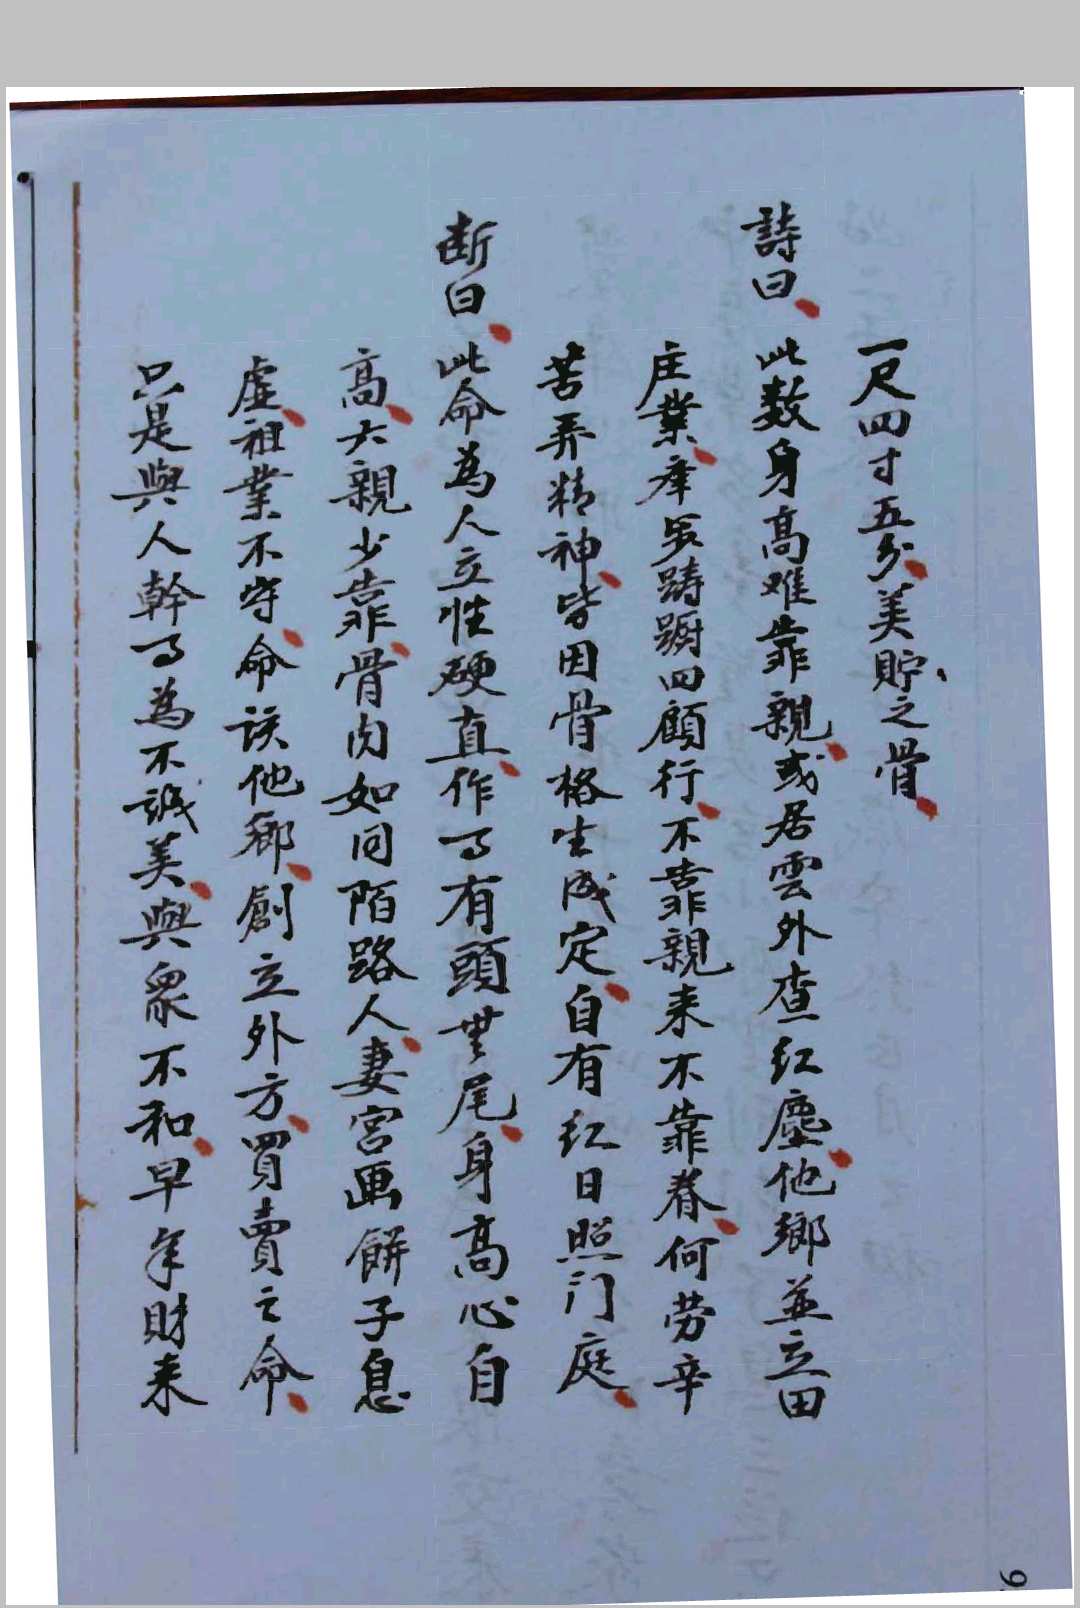 一尺四寸五分美貯之骨
詩曰 此数身高难靠親或居雲外查红塵他鄉並立田
庄業庠序踌蹰四顧行不靠親来不靠眷何劳辛
苦弄精神皆因骨格生成定自有红日照门庭
断曰 此命為人立性硬直作事有頭無尾身高心自
高六親少靠骨肉如同陌路人妻宮画餅子息
虛祖業不守命该他鄉創立外方買賣之命
只是與人幹事為不誠美與衆不和早年財来
9